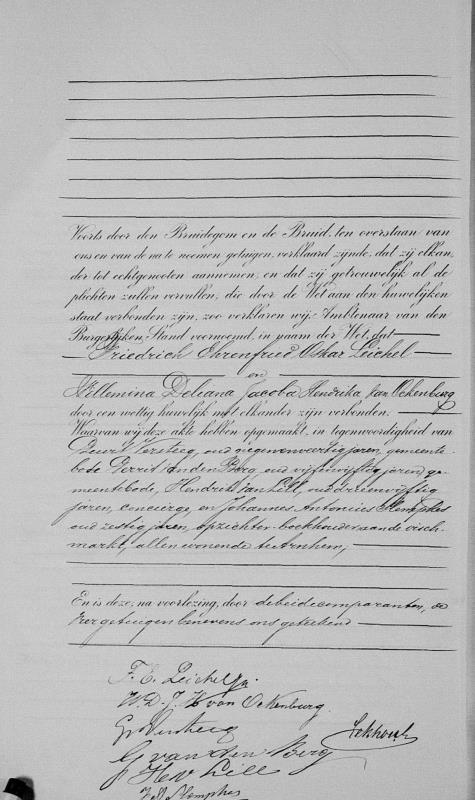 Voorts door den Bruidegom en de Bruid, ten overstaan van
ons en van de na te noemen getuigen, verklaard zijnde, dat zij elkan,
der tot echtgenooten aannemen, en dat zij getrouwelijk al de
plichten zullen vervullen, die door de Wet aan den huwelijken
staat verbonden zijn, zoo verklaren wij, Ambtenaar van den
Burgerlijken Stand voornoemd, in naam der Wet, dat
Friedrich Ehrenfried Oskar Leichel
en
Willemina Deliana Jacoba Hendrika van Ockenburg
door een wettig huwelijk met elkander zijn verbonden.
Waarvan wij deze akte hebben opgemaakt, in tegenwoordigheid van
Geurt Versteeg, oud negenenveertig jaren, gemeente-
bode, Gerrit van den Berg, oud vijfenvijftig jaren, ge-
meentebode, Hendrik van Lill, oud drieenvijftig
jaren, concierge, en Johannes Antonius Klemphes
oud zestig jaren, opzichter-boekhouder aan de visch-
markt, allen wonende te Arnhem,
En is deze, na voorlezing, door de beide comparanten, de
vier getuigen benevens ons geteekend
F. E. Leichel Jr.
W. D. J. H van Ockenburg.
G Versteeg
G van den Berg
H V Lill